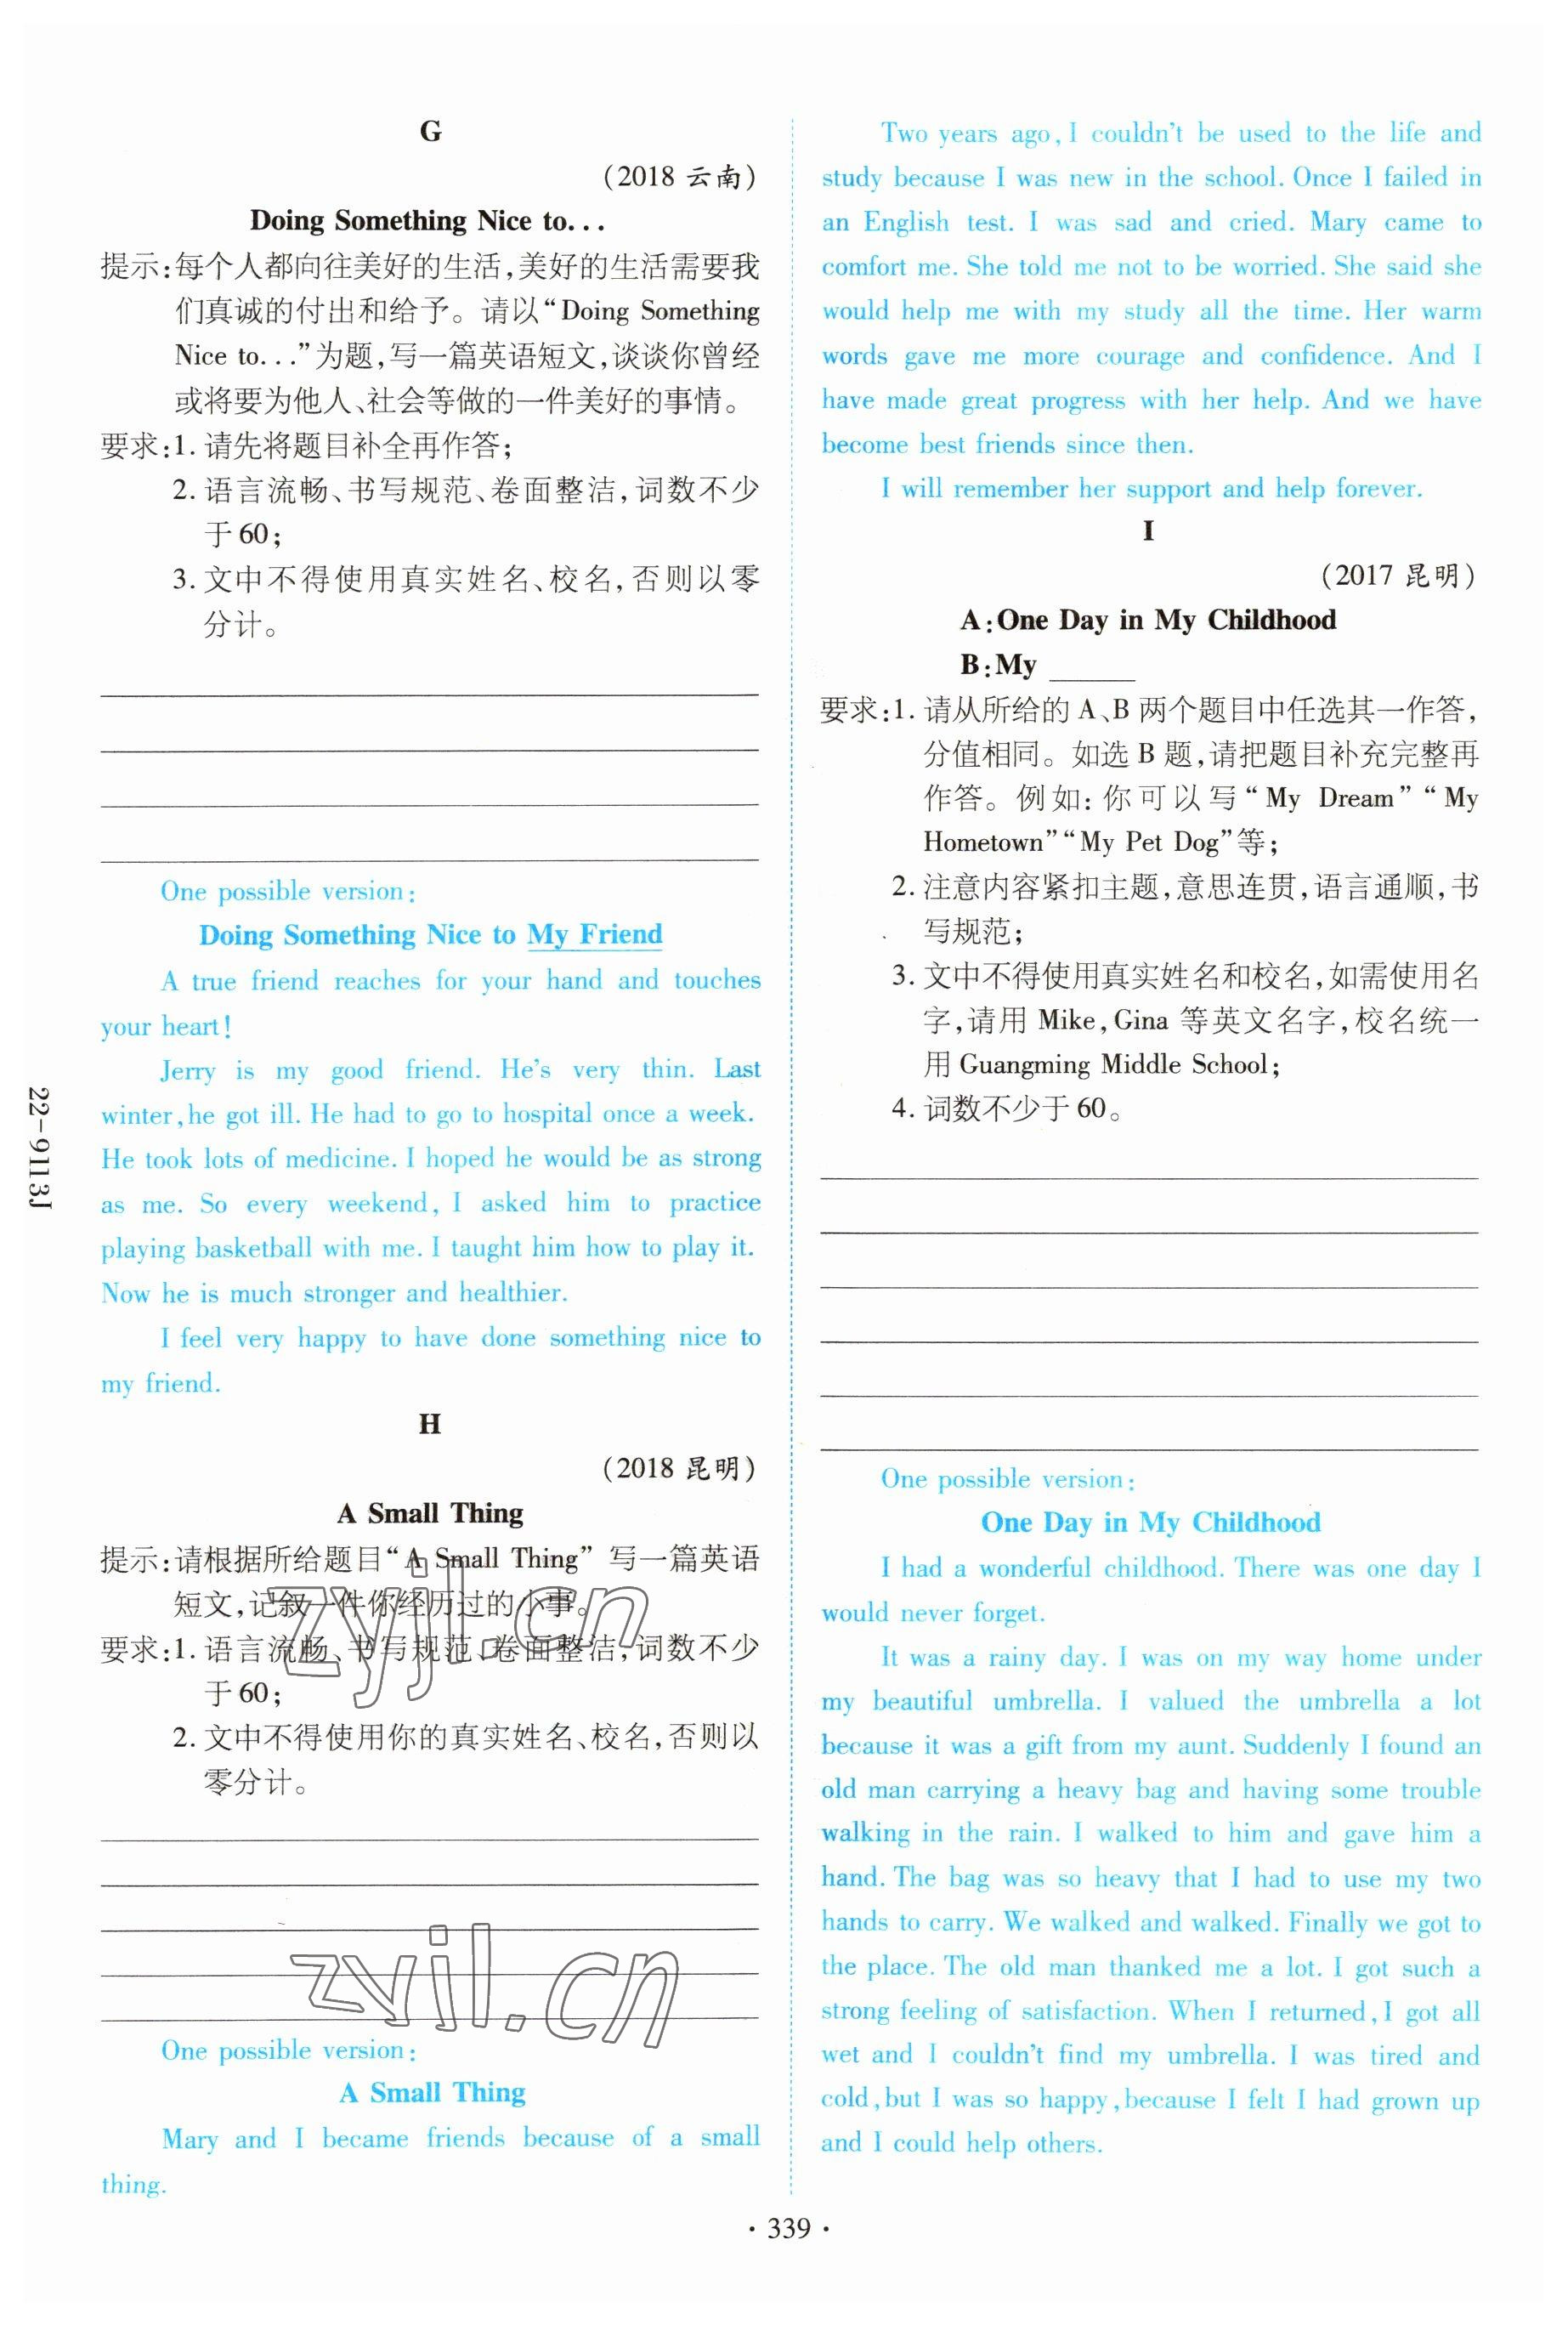 G
(2018 云南)
Doing Something Nice to...
提示:每个人都向往美好的生活,美好的生活需要我
们真诚的付出和给予。请以“Doing Something
Nice to...”为题,写一篇英语短文,谈谈你曾经
或将要为他人、社会等做的一件美好的事情。
要求:1. 请先将题目补全再作答;
2. 语言流畅、书写规范、卷面整洁,词数不少
于 60;
3. 文中不得使用真实姓名、校名,否则以零
分计。
One possible version:
Doing Something Nice to My Friend
A true friend reaches for your hand and touches
your heart!
Jerry is my good friend. He's very thin. Last
winter, he got ill. He had to go to hospital once a week.
He took lots of medicine. I hoped he would be as strong
as me. So every weekend, I asked him to practice
playing basketball with me. I taught him how to play it.
Now he is much stronger and healthier.
I feel very happy to have done something nice to
my friend.
H
(2018 昆明)
A Small Thing
提示:请根据所给题目“A Small Thing” 写一篇英语
短文,记叙一件你经历过的小事。
要求:1. 语言流畅、书写规范、卷面整洁,词数不少
于 60;
2. 文中不得使用你的真实姓名、校名,否则以
零分计。
One possible version:
A Small Thing
Mary and I became friends because of a small
thing.
Two years ago, I couldn't be used to the life and
study because I was new in the school. Once I failed in
an English test. I was sad and cried. Mary came to
comfort me. She told me not to be worried. She said she
would help me with my study all the time. Her warm
words gave me more courage and confidence. And I
have made great progress with her help. And we have
become best friends since then.
I will remember her support and help forever.
I
(2017 昆明)
A:One Day in My Childhood
B:My ______
要求:1. 请从所给的 A、B 两个题目中任选其一作答,
分值相同。如选 B 题,请把题目补充完整再
作答。例如:你可以写“My Dream”“My
Hometown”“My Pet Dog”等;
2. 注意内容紧扣主题,意思连贯,语言通顺,书
写规范;
3. 文中不得使用真实姓名和校名,如需使用名
字,请用 Mike, Gina 等英文名字,校名统一
用 Guangming Middle School;
4. 词数不少于 60。
One possible version:
One Day in My Childhood
I had a wonderful childhood. There was one day I
would never forget.
It was a rainy day. I was on my way home under
my beautiful umbrella. I valued the umbrella a lot
because it was a gift from my aunt. Suddenly I found an
old man carrying a heavy bag and having some trouble
walking in the rain. I walked to him and gave him a
hand. The bag was so heavy that I had to use my two
hands to carry. We walked and walked. Finally we got to
the place. The old man thanked me a lot. I got such a
strong feeling of satisfaction. When I returned, I got all
wet and I couldn't find my umbrella. I was tired and
cold, but I was so happy, because I felt I had grown up
and I could help others.
22-9113J
zyjl.cn
zyjl.cn
· 339 ·